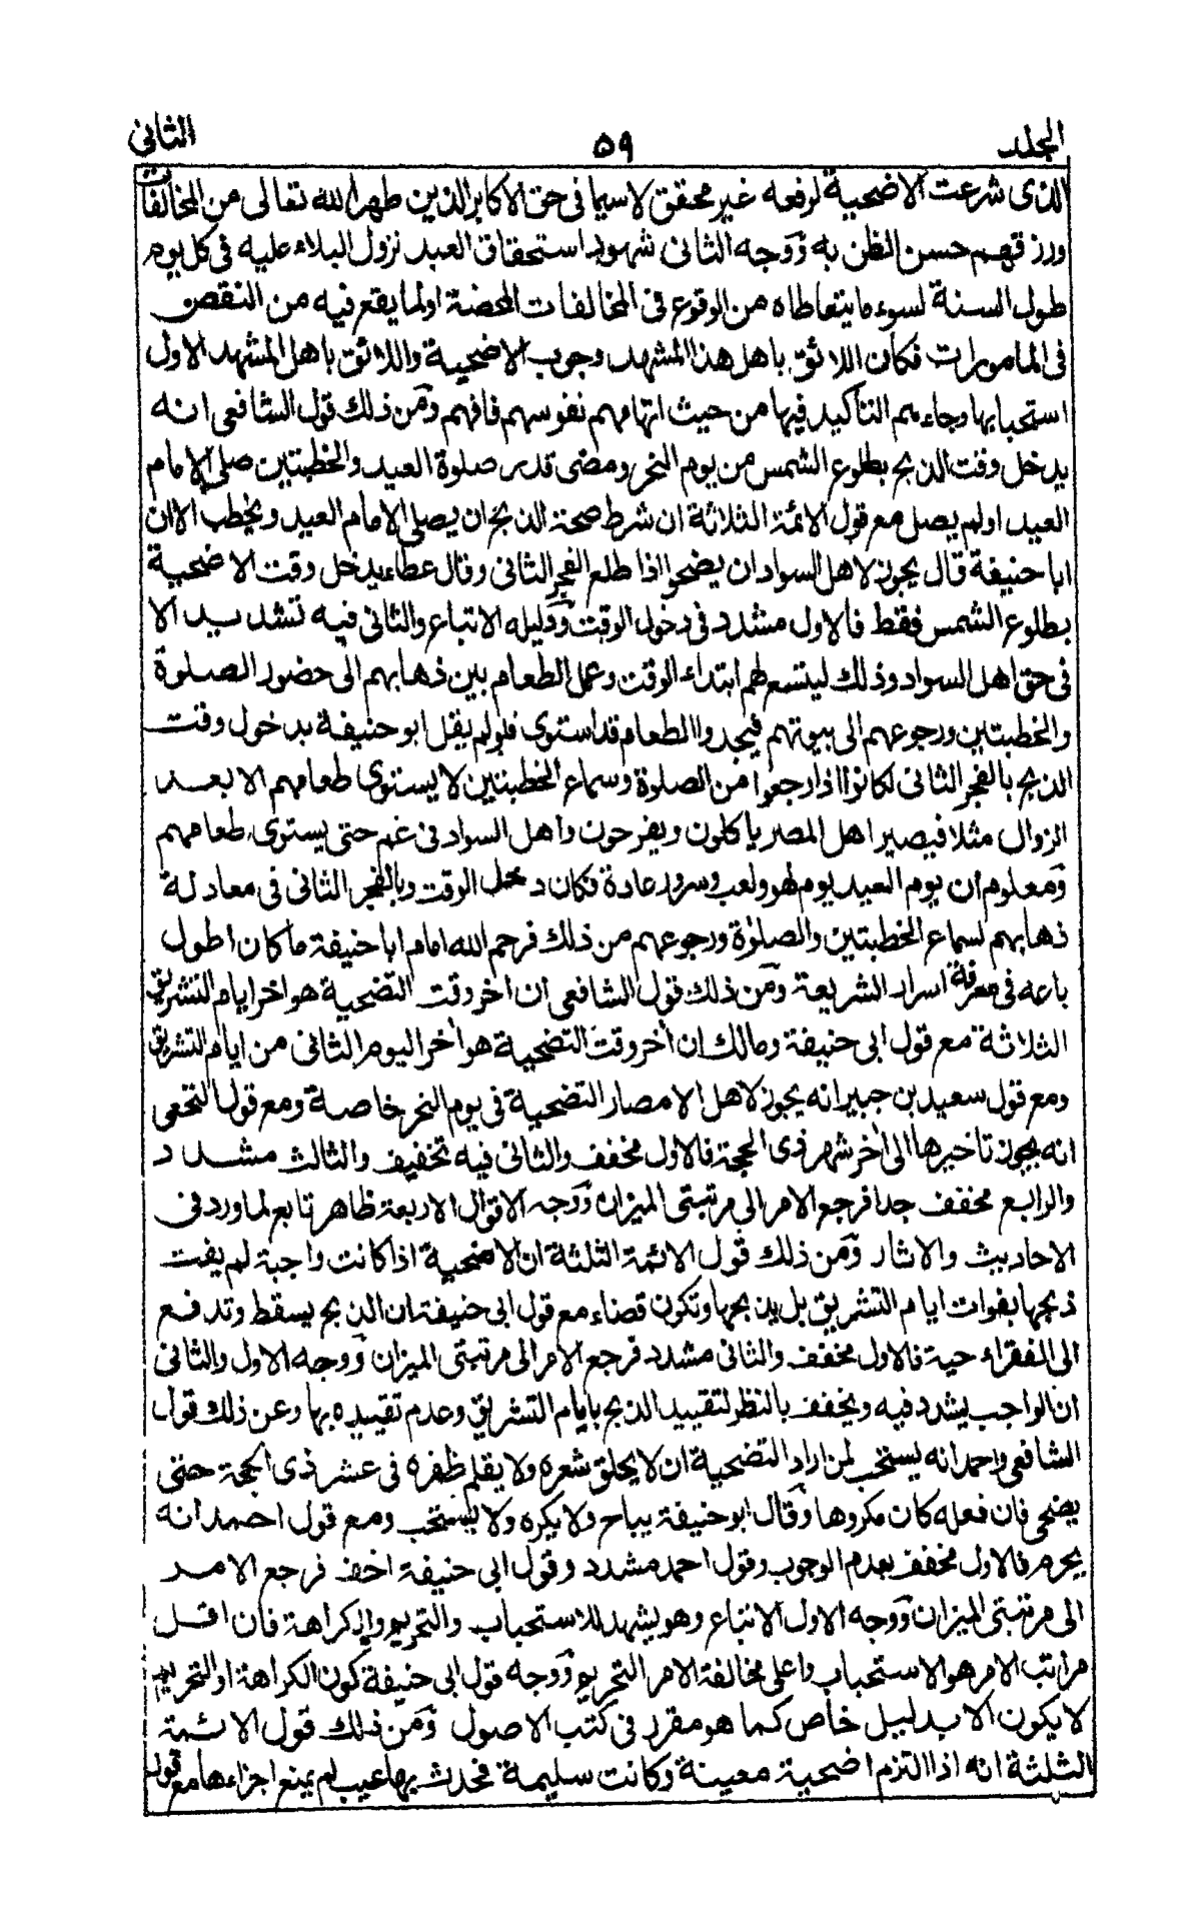 المجلد ٥٩ الثانی
الذی شرعت الاضحیة لرفعه غیر محقق لاسیما فی حق الاکابر الذین طهرالله تعالی من المخالفات
ورزقهم حسن الظن به ووجه الثانی شهود استحقاق العبد نزول البلاء علیه فی کل یوم
طول السنة لسوء ما یتعاطاه من الوقوع فی المخالفات المحضة اولما یقع فیه من النقص
فی المامورات فکان اللائق باهل هذا المشهد وجوب الاضحیة واللائق باهل المشهد الاول
استحبابها وجاءهم التاکید فیها من حیث اتهامهم نفوسهم فافهم ومن ذلك قول الشافعی انه
یدخل وقت الذبح بطلوع الشمس من یوم النحر ومضی قدر صلوة العید والخطبتین صلی الامام
العید اولم یصل مع قول الائمة الثلاثة ان شرط صحة الذبح ان یصلی الامام العید ویخطب الا ان
ابا حنیفة قال یجوز لاهل السواد ان یضحوا اذا طلع الفجر الثانی وقال عطاء یدخل وقت الاضحیة
بطلوع الشمس فقط فالاول مشدد فی دخول الوقت ودلیله الاتباع والثانی فیه تشدید الا
فی حق اهل السواد وذلك لیتسع لهم ابتداء الوقت وعمل الطعام بین ذهابهم الی حضور الصلوة
والخطبتین ورجوعهم الی بیوتهم فیجدوا الطعام قد استوی فلولم یقل ابو حنیفة بدخول وقت
الذبح بالفجر الثانی لکانوا اذا رجعوا من الصلوة وسماع الخطبتین لا یستوی طعامهم الا بعد
الزوال مثلا فیصیر اهل المصر یاکلون ویفرحون واهل السواد فی غم حتی یستوی طعامهم
ومعلوم ان یوم العید یوم لهو ولعب وسرور عادة فکان دخل الوقت وبالفجر الثانی فی معادلة
ذهابهم لسماع الخطبتین والصلوٰة ورجوعهم من ذلك فرحم الله امام ابا حنیفة ما کان اطول
باعه فی معرفة اسرار الشریعة ومن ذلك قول الشافعی ان اخر وقت التضحیة هو اخر ایام التشریق
الثلاثة مع قول ابی حنیفة ومالك ان أخر وقت التضحیة هو أخر الیوم الثانی من ایام التشریق
ومع قول سعید بن جبیر انه یجوز لاهل الامصار التضحیة فی یوم النحر خاصة ومع قول النخعی
انه یجوز تاخیرها الی أخر شهر ذی الحجة فالاول مخفف والثانی فیه تخفیف والثالث مشدد
والرابع مخفف جدا فرجع الامر الی مرتبتی المیزان ووجه الاقوال الاربعة ظاهر تابع لما ورد فی
الاحادیث والاثار ومن ذلك قول الائمة الثلثة ان الاضحیة اذا کانت واجبة لم یفت
ذبحها بفوات ایام التشریق بل یذبحها وتکون قضاء مع قول ابی حنیفة ان الذبح یسقط وتدفع
الی الفقراء حیة فالاول مخفف والثانی مشدد فرجع الامر الی مرتبتی المیزان ووجه الاول والثانی
ان الواجب یشدد فیه ویخفف بالنظر لتقیید الذبح بایام التشریق وعدم تقییده بها وعن ذلك قول
الشافعی واحمد انه یستحب لمن اراد التضحیة ان لا یحلق شعره ولا یقلم ظفره فی عشر ذی الحجة حتی
یضحی فان فعله کان مکروها وقال ابو حنیفة یباح ولا یکره ولا یستحب ومع قول احمد انه
یحرم فالاول مخفف بعدم الوجوب وقول احمد مشدد وقول ابی حنیفة اخف فرجع الامر
الی مرتبتی المیزان ووجه الاول الاتباع وهو یشهد للاستحباب والتحریم والکراهة فان اقل
مراتب الامر هو الاستحباب واعلی مخالفة الامر التحریم ووجه قول ابی حنیفة کون الکراهة او التحریم
لا یکون الا بدلیل خاص کما هو مقرر فی کتب الاصول ومن ذلك قول الائمة
الثلثة انه اذا التزم اضحیة معینة وکانت سلیمة فحدث بها عیب لم یمنع اجزاءها مع قول